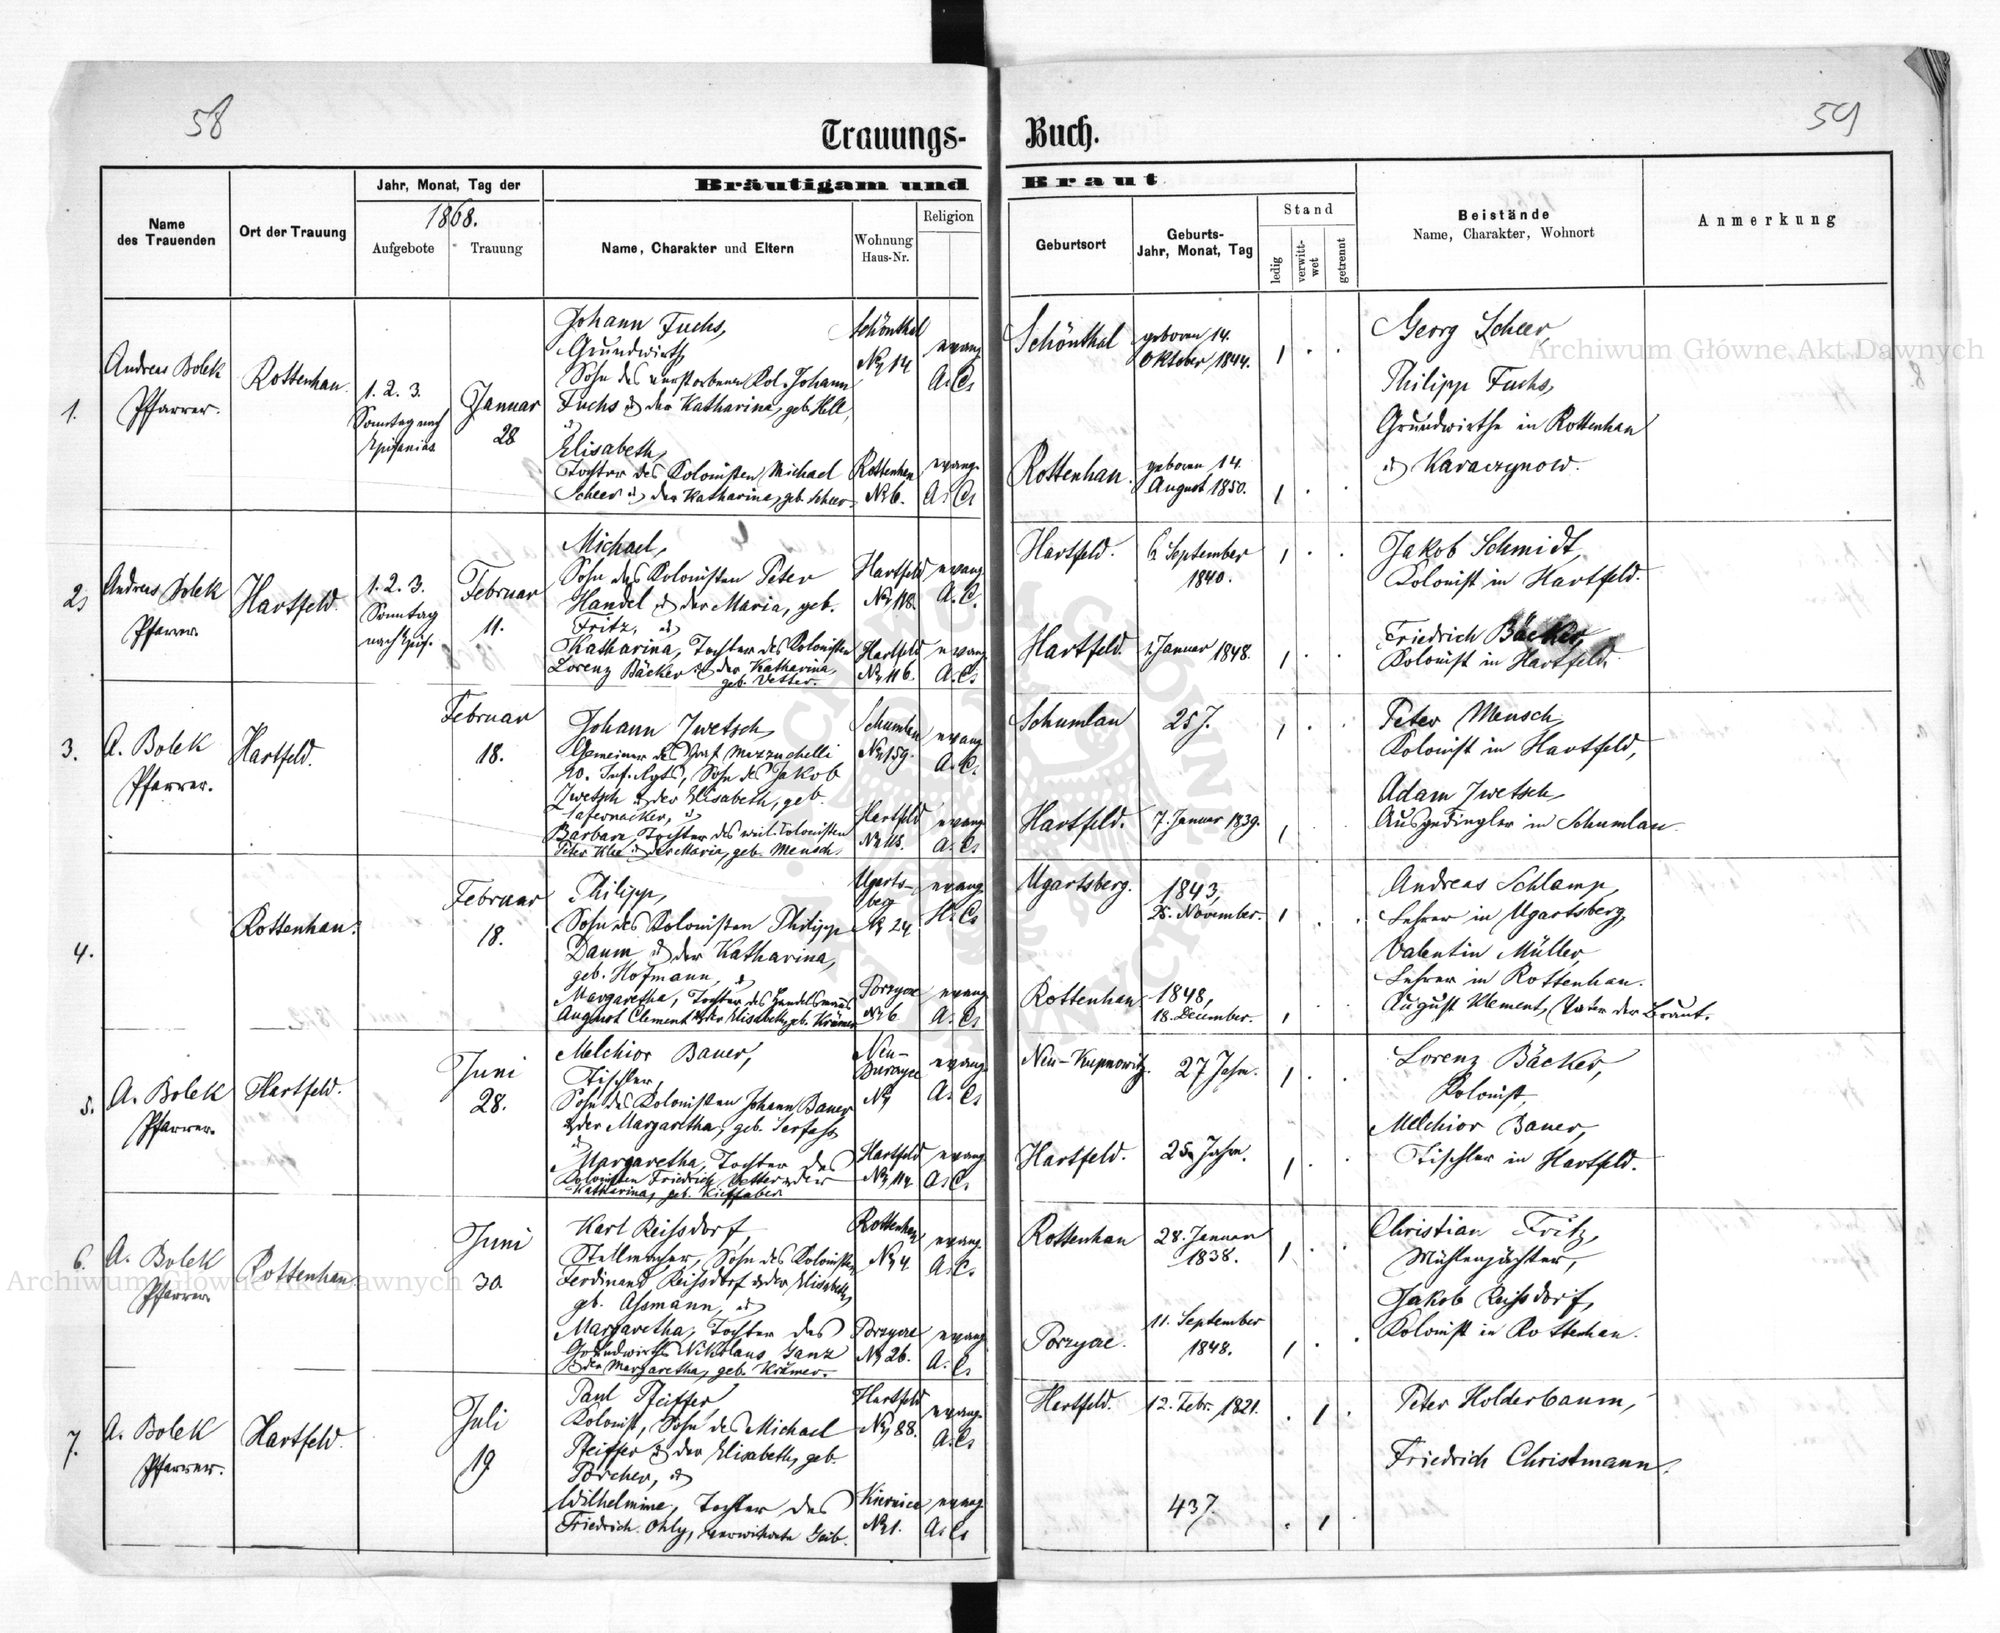 58
59
Trauungs- Buch.
Name des Trauenden
Ort der Trauung
Jahr, Monat, Tag der
1868.
Aufgebote
Trauung
Bräutigam und Braut
Name, Charakter und Eltern
Wohnung Haus-Nr.
Religion
Geburtsort
Geburts-
Jahr, Monat, Tag
Stand
ledig
verwitt-
wet
getrennt
Beistände
Name, Charakter, Wohnort
Anmerkung
1.
Andreas Bolek
Pfarrer.
Rottenhan.
1. 2. 3.
Sonntag nach
Epifanias
Januar
28
Johann Fuchs,
Grundwirth
Sohn des verstorbenen Kol. Johann
Fuchs & der Katharina, geb. Hell,
&
Elisabeth,
Tochter des Kolonisten Michael
Scheer & der Katharina, geb. Scheer
Schönthal
No 14
Rottenhan
No 6.
evang.
A. C.
evang.
A. C.
Schönthal
geboren 14.
Oktober 1844.
Rottenhan.
geboren 14.
August 1850.
Georg Scheer,
Philipp Fuchs,
Grundwirthe in Rottenhan
& Karaczynow.
2,
Andreas Bolek
Pfarrer.
Hartfeld.
1. 2. 3.
Sonntag
nach Epif.
Februar
11.
Michael,
Sohn des Kolonisten Peter
Handel & der Maria, geb.
Fritz, &
Katharina, Tochter des Kolonisten
Lorenz Bäcker & der Katharina,
geb. Vetter.
Hartfeld
No 118.
Hartfeld
No 116.
evang.
A. C.
evang.
A. C.
Hartfeld.
6 September
1840.
Hartfeld.
1. Januar 1848.
Jakob Schmidt,
Kolonist in Hartfeld.
Friedrich Bäcker,
Kolonist in Hartfeld.
3.
A. Bolek
Pfarrer.
Hartfeld.
Februar
18.
Johann Zwetsch
Gemeiner des Graf Mazzuchelli
10. Inf. Rgts, Sohn des Jakob
Zwetsch & der Elisabeth, geb.
Lafernacker, &
Barbara, Tochter des weil. Kolonisten
Peter Klee & der Maria, geb. Mensch.
Schumlan
No 159.
Hartfeld
No 115.
evang.
A. C.
evang.
A. C.
Schumlau
25 J.
Hartfeld.
7. Januar 1839.
Peter Mensch,
Kolonist in Hartfeld,
Adam Zwetsch,
Ausgedingler in Schumlau.
4.
Rottenhan.
Februar
18.
Philipp,
Sohn des Kolonisten Philipp
Daum & der Katharina,
geb. Hofmann, &
Margaretha, Tochter des Handelsmans
August Clement & der Elisabeth, geb. Krämer
Ugarts-
berg
No 24
Porzyce
No 6
evang.
H. C.
evang.
A. C.
Ugartsberg.
1843,
November.
Rottenhan
1848,
18. December.
Andreas Schlamp,
Lehrer in Ugartsberg,
Valentin Müller,
Lehrer in Rottenhan.
August Klement, Vater der Braut.
5.
A. Bolek
Pfarrer.
Hartfeld.
Juni
28.
Melchior Bauer,
Tischler,
Sohn des Kolonisten Johann Bauer
& der Margaretha, geb. Serfass
&
Margaretha, Tochter des
Kolonisten Friedrich Vetter & der
Katharina, geb. Kieffaber.
Neu-
No
Hartfeld
No 114
evang.
A. C.
evang.
A. C.
Neu-Kupnowitz.
27 Jahre.
Hartfeld.
25 Jahre.
Lorenz Bäcker,
Kolonist,
Melchior Bauer,
Tischler in Hartfeld.
6.
A. Bolek
Pfarrer
Rottenhan
Juni
30.
Karl Reissdorf,
Stellmacher, Sohn des Kolonisten
Ferdinand Reissdorf & der Elisabeth,
geb. Assmann, &
Margaretha, Tochter des
Grundwirths Nikolaus Ganz
& der Margaretha, geb. Krämer.
Rottenhan
No 4
Porzyce
No 26.
evang.
A. C.
evang.
A. C.
Rottenhan
28. Januar
1838.
Porzyce.
11. September
1848.
Christian Fritz,
Mühlenpächter,
Jakob Reissdorf,
Kolonist in Rottenhan.
7.
A. Bolek
Pfarrer.
Hartfeld.
Juli
19
Paul Pfeiffer,
Kolonist, Sohn des Michael
Pfeiffer & der Elisabeth, geb.
Porcher, &
Wilhelmine, Tochter des
Friedrich Ohly, verwitwete Geib.
Hartfeld
No 88.
Kiernica
No 1.
evang.
A. C.
evang.
A. C.
Hartfeld.
12. Febr. 1821.
43 J.
Peter Holderbaum,
Friedrich Christmann.
Archiwum Główne Akt Dawnych
Archiwum Główne Akt Dawnych